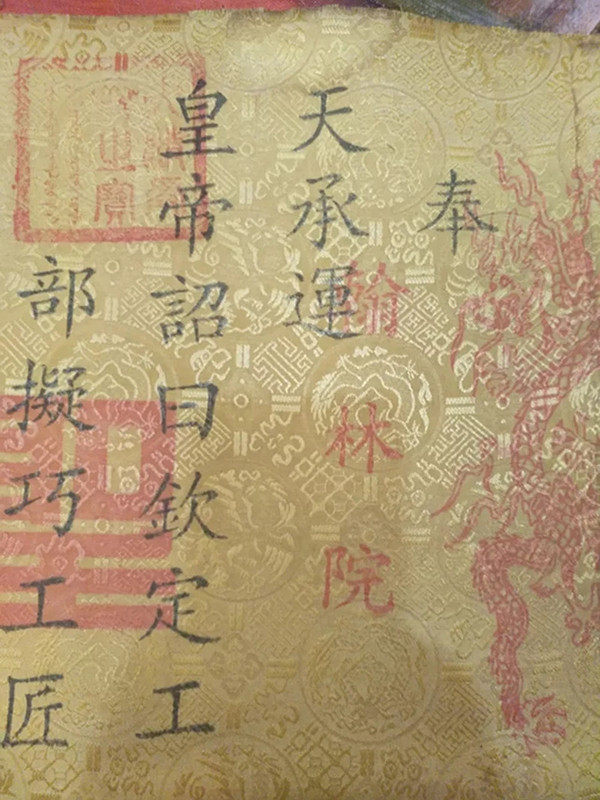 奉
天承運
翰林院
皇帝詔曰欽定工
部擬巧工匠
之寶